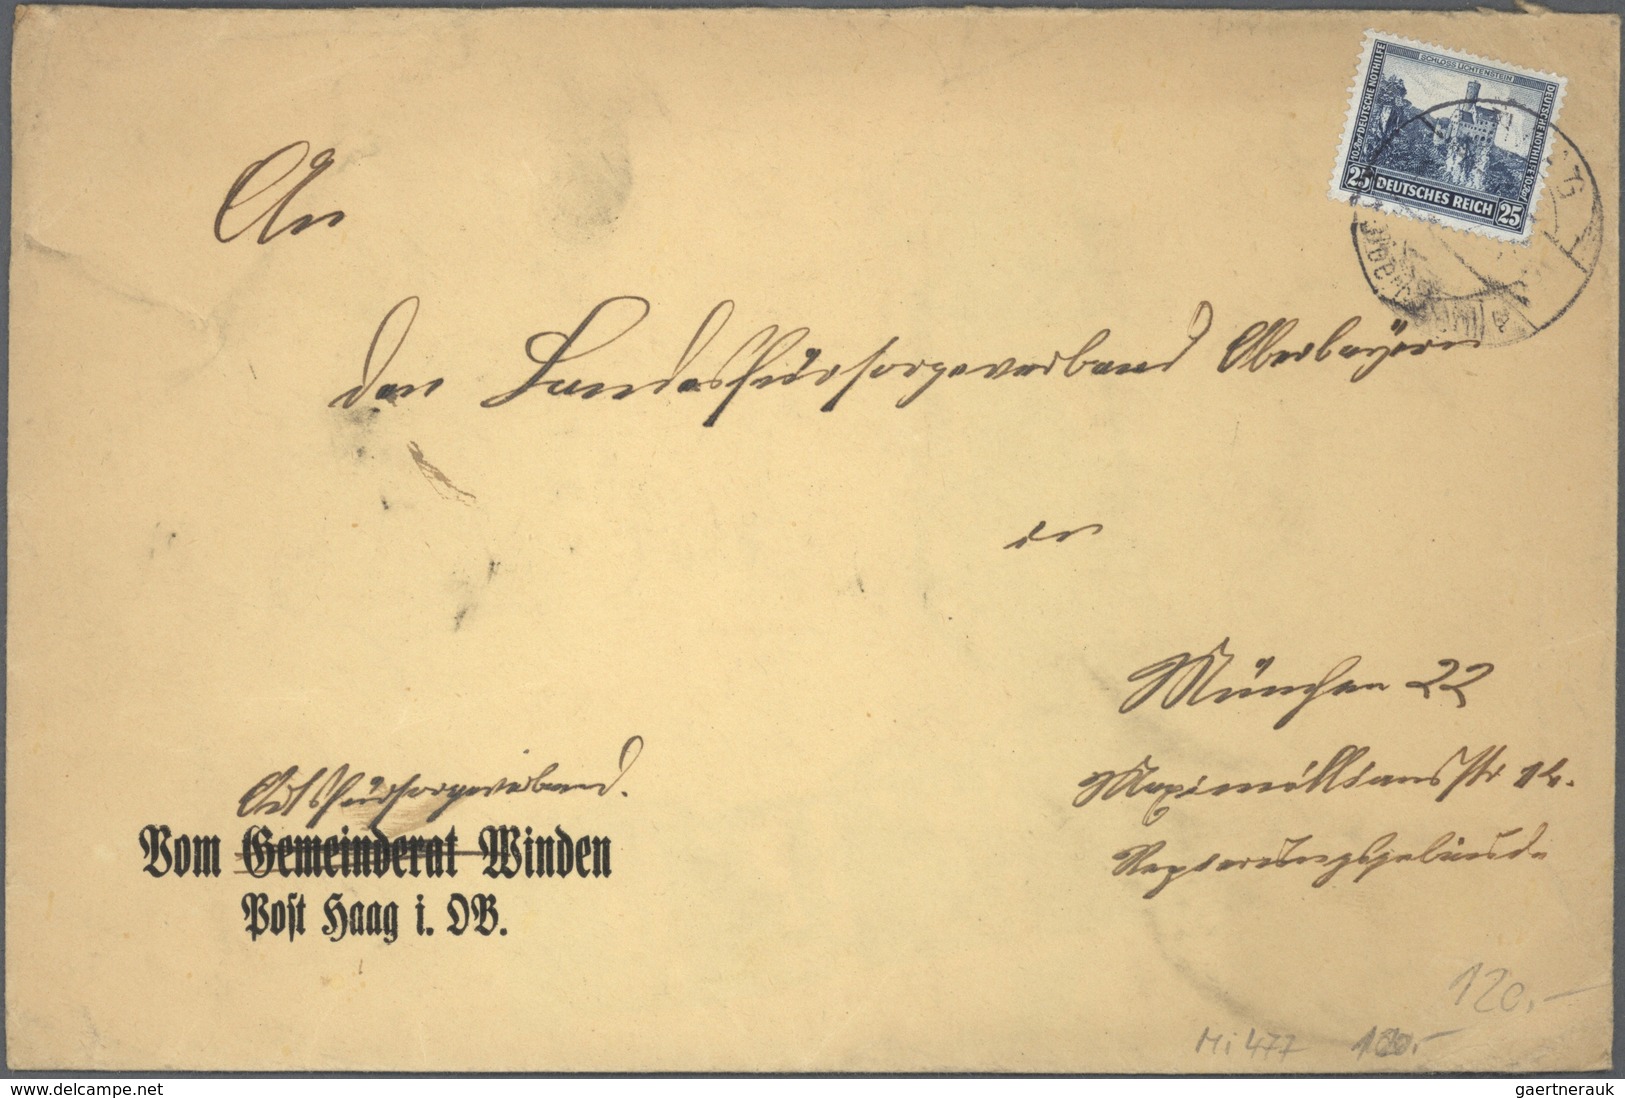 SCHLOSS LICHTENSTEIN
DEUTSCHE NOTHILFE
DEUTSCHE NOTHILFE
25 DEUTSCHES REICH 25
An
den Landesfürsorgeverband Oberbayern
in
München 22
Maximilliansstr 14.
Regierungsgebäude
Ortsfürsorgeverband.
Vom Gemeinderat Winden
Post Haag i. OB.
120,-
Mi 477 180,-
delcampe.net
gaertnerauk